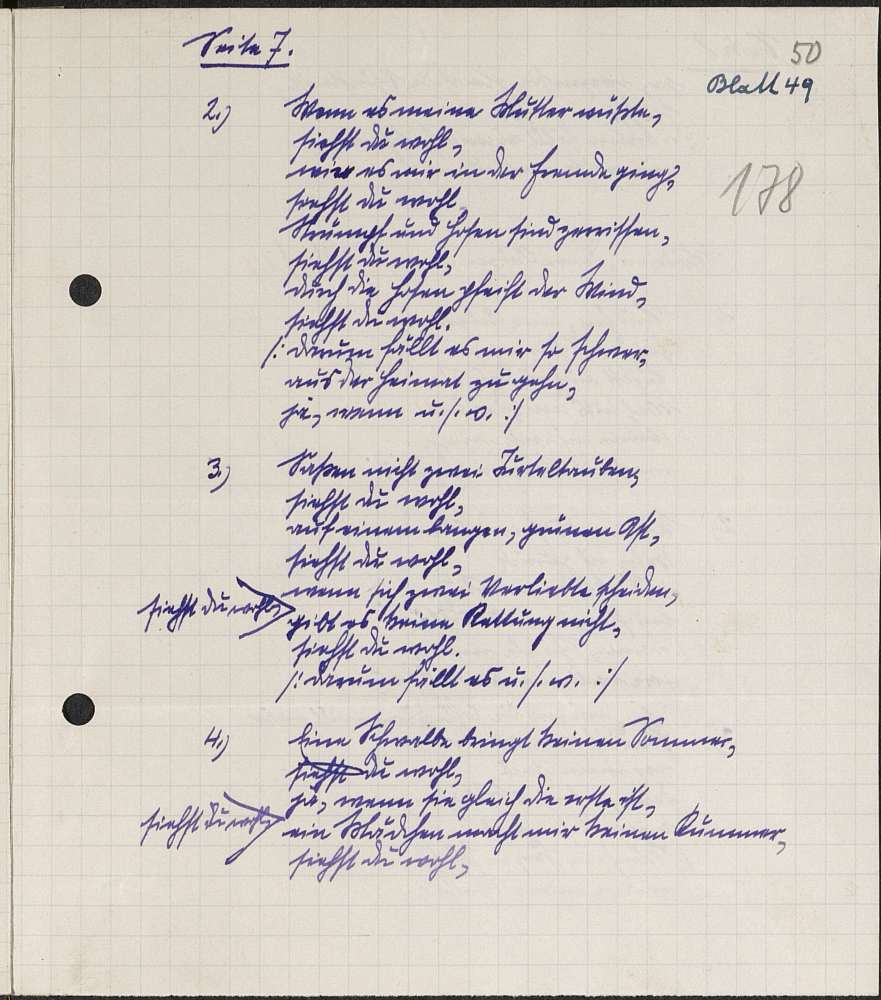 Seite 7.
50
Blatt 49
178
2.) Wenn es meine Mutter wüßte,
siehst du wohl,
wie es mir in der Fremde ging,
siehst du wohl
Strümpf und Hosen sind zerrissen,
siehst du wohl,
durch die Hosen pfeift der Wind,
siehst du wohl.
/: darum fällt es mir so schwer,
aus der Heimat zu gehn,
ja, wenn u.s.w. :/
3.) Saßen nicht zwei Turteltauben,
siehst du wohl,
auf einem langen, grünen Ast,
siehst du wohl,
wenn sich zwei Verliebte scheiden,
siehst du wohl,
gibt es keine Rettung nicht,
siehst du wohl.
/: darum fällt es u.s.w. :/
4.) Eine Schwalbe bringt keinen Sommer,
siehst du wohl,
ja, wenn sie gleich die erste ist,
siehst du wohl,
ein Mädchen macht mir keinen Kummer,
siehst du wohl,